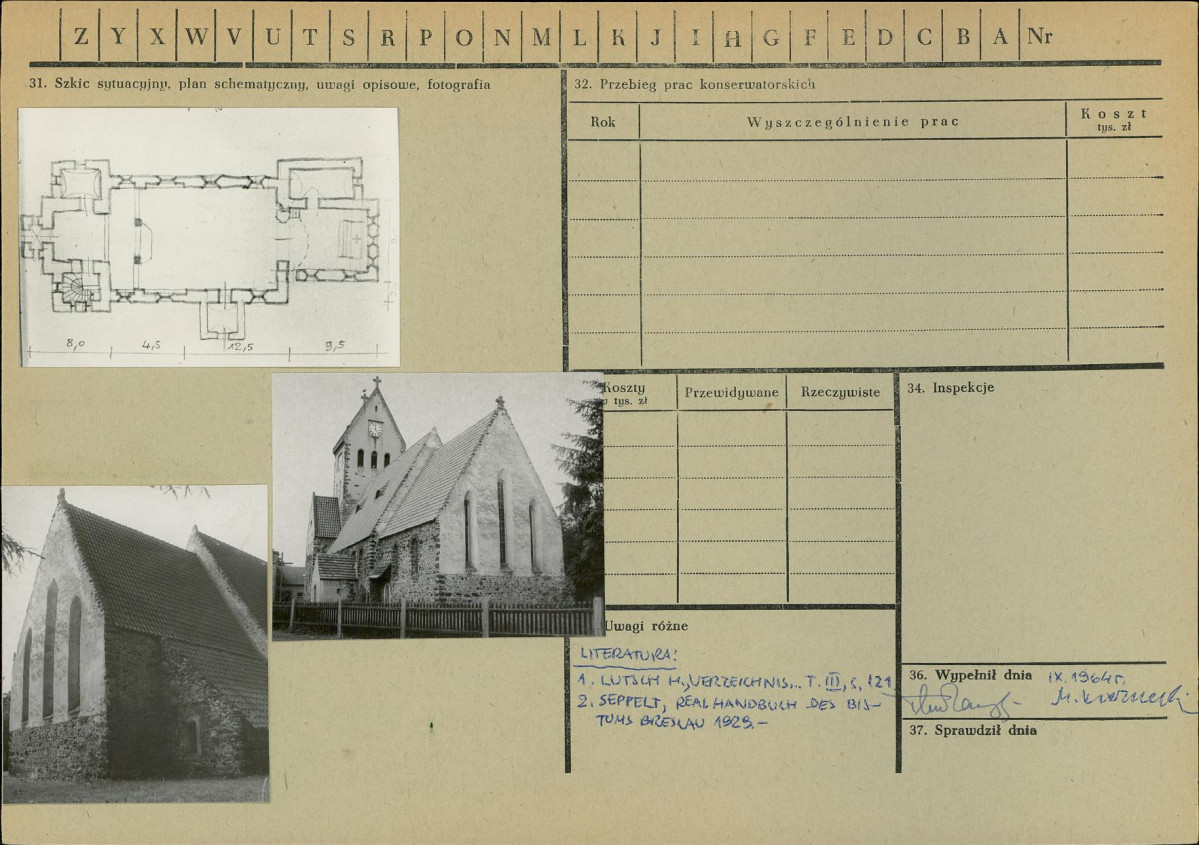 Z Y X W V U T S R P O N M L K J I H G F E D C B A Nr
31. Szkic sytuacyjny, plan schematyczny, uwagi opisowe, fotografia
8,0 4,5 12,5 9,5
32. Przebieg prac konserwatorskich
Rok Wyszczególnienie prac Koszt
tys. zł
Koszty Przewidywane Rzeczywiste
tys. zł
34. Inspekcje
Uwagi różne
LITERATURA:
1. LUTSCH H., VERZEICHNIS... T. III, S, 121
2. SEPPELT, REALHANDBUCH DES BIS-
TUMS BRESLAU 1929.-
36. Wypełnił dnia IX.1964r.
37. Sprawdził dnia